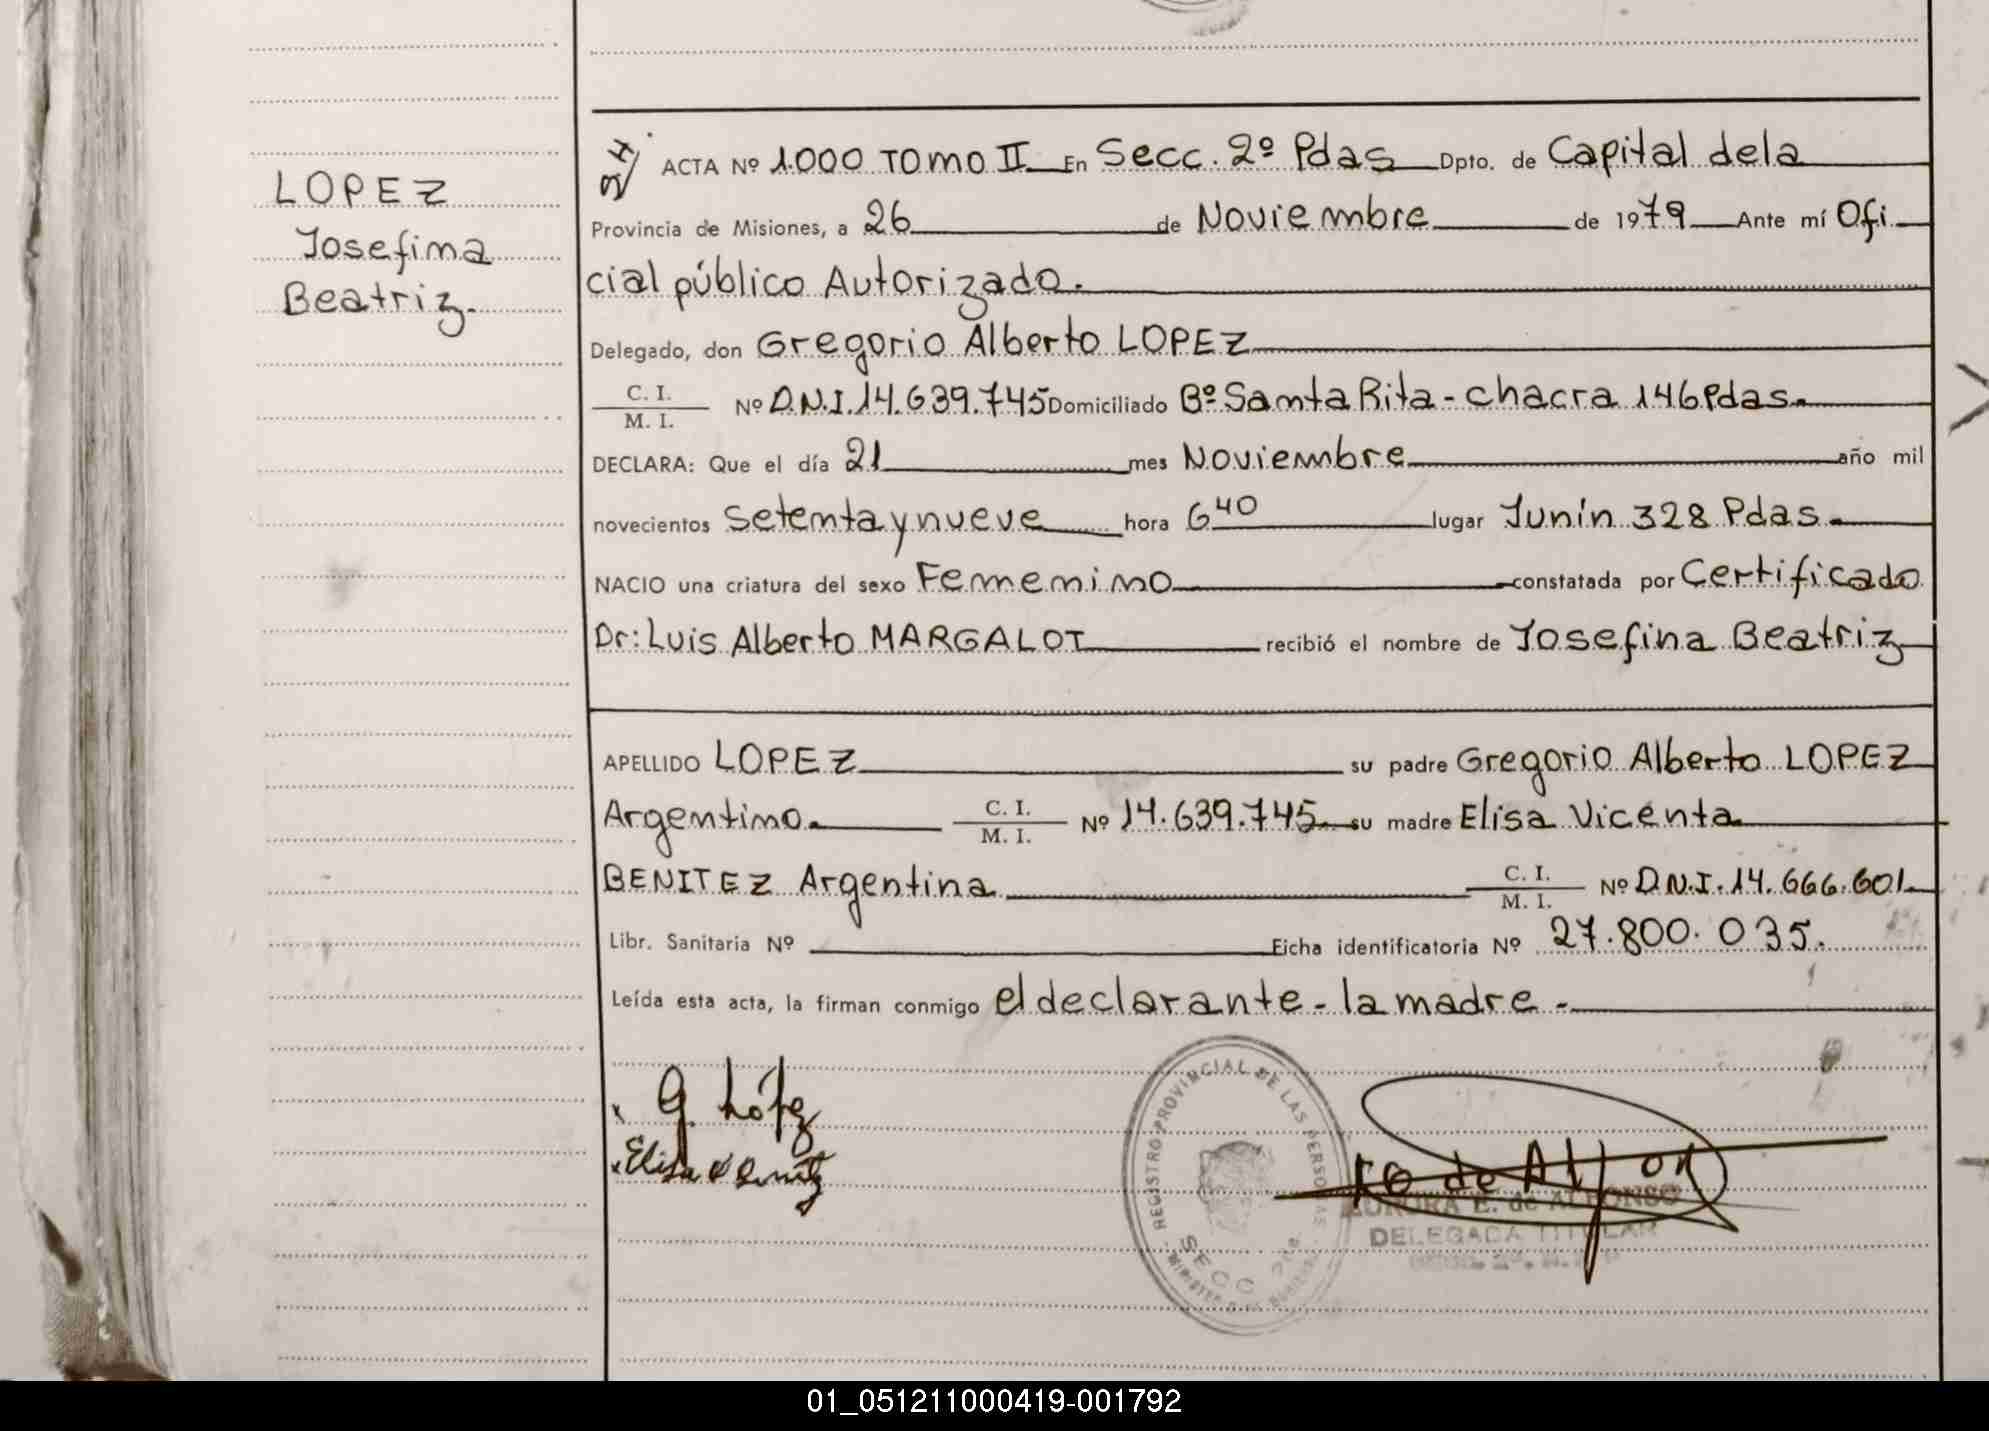 LOPEZ
Josefina
Beatriz.
ACTA Nº 1.000 TOMO II En Secc. 2º Pdas Dpto. de Capital dela
Provincia de Misiones, a 26 de Noviembre de 1979 Ante mí Ofi
cial público Autorizado.
Delegado, don Gregorio Alberto LOPEZ
C. I.
M. I. Nº D.N.I. 14.639.745 Domiciliado Bº Santa Rita - chacra 146 Pdas.
DECLARA: Que el día 21 mes Noviembre año mil
novecientos setenta y nueve hora 6 40 lugar Junín 328 Pdas.
NACIO una criatura del sexo Femenino constatada por Certificado
Dr: Luis Alberto MARGALOT recibió el nombre de Josefina Beatriz
APELLIDO LOPEZ su padre Gregorio Alberto LOPEZ
Argentino. C. I.
M. I. Nº 14.639.745. su madre Elisa Vicenta
BENITEZ Argentina C. I.
M. I. Nº D.N.I. 14.666.601
Libr. Sanitaria Nº Ficha identificatoria Nº 27.800.035.
Leída esta acta, la firman conmigo el declarante - la madre -
x G. López
x Elisa V Benitez
REGISTRO PROVINCIAL DE LAS PERSONAS
SECC 2da.
AURORA E. de ALFONSO
DELEGADA TITULAR
01_051211000419-001792